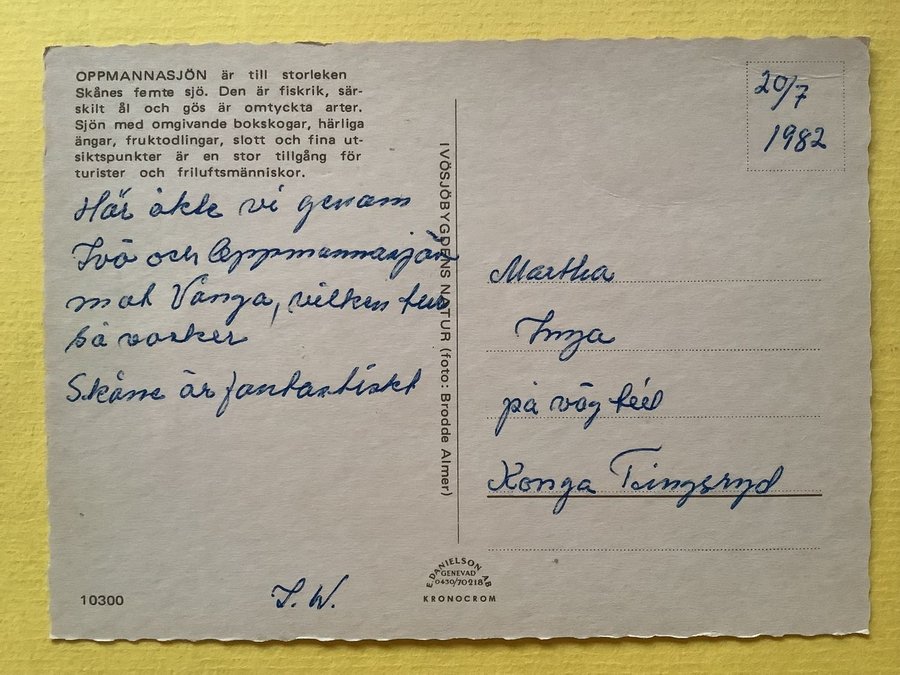 OPPMANNASJÖN är till storleken
Skånes femte sjö. Den är fiskrik, sär-
skilt ål och gös är omtyckta arter.
Sjön med omgivande bokskogar, härliga
ängar, fruktodlingar, slott och fina ut-
siktspunkter är en stor tillgång för
turister och friluftsmänniskor.
Här åkte vi genom
Ivö och Oppmannasjön
mot Vånga, vilken tur
så vacker
Skåne är fantastiskt
I.W.
10300
IVÖSJÖBYGDENS NATUR (foto: Brodde Almer)
E. DANIELSON AB
GENEVAD
0430/70218
KRONOCROM
20/7
1982
Martha
Inga
på väg till
Konga Tingsryd